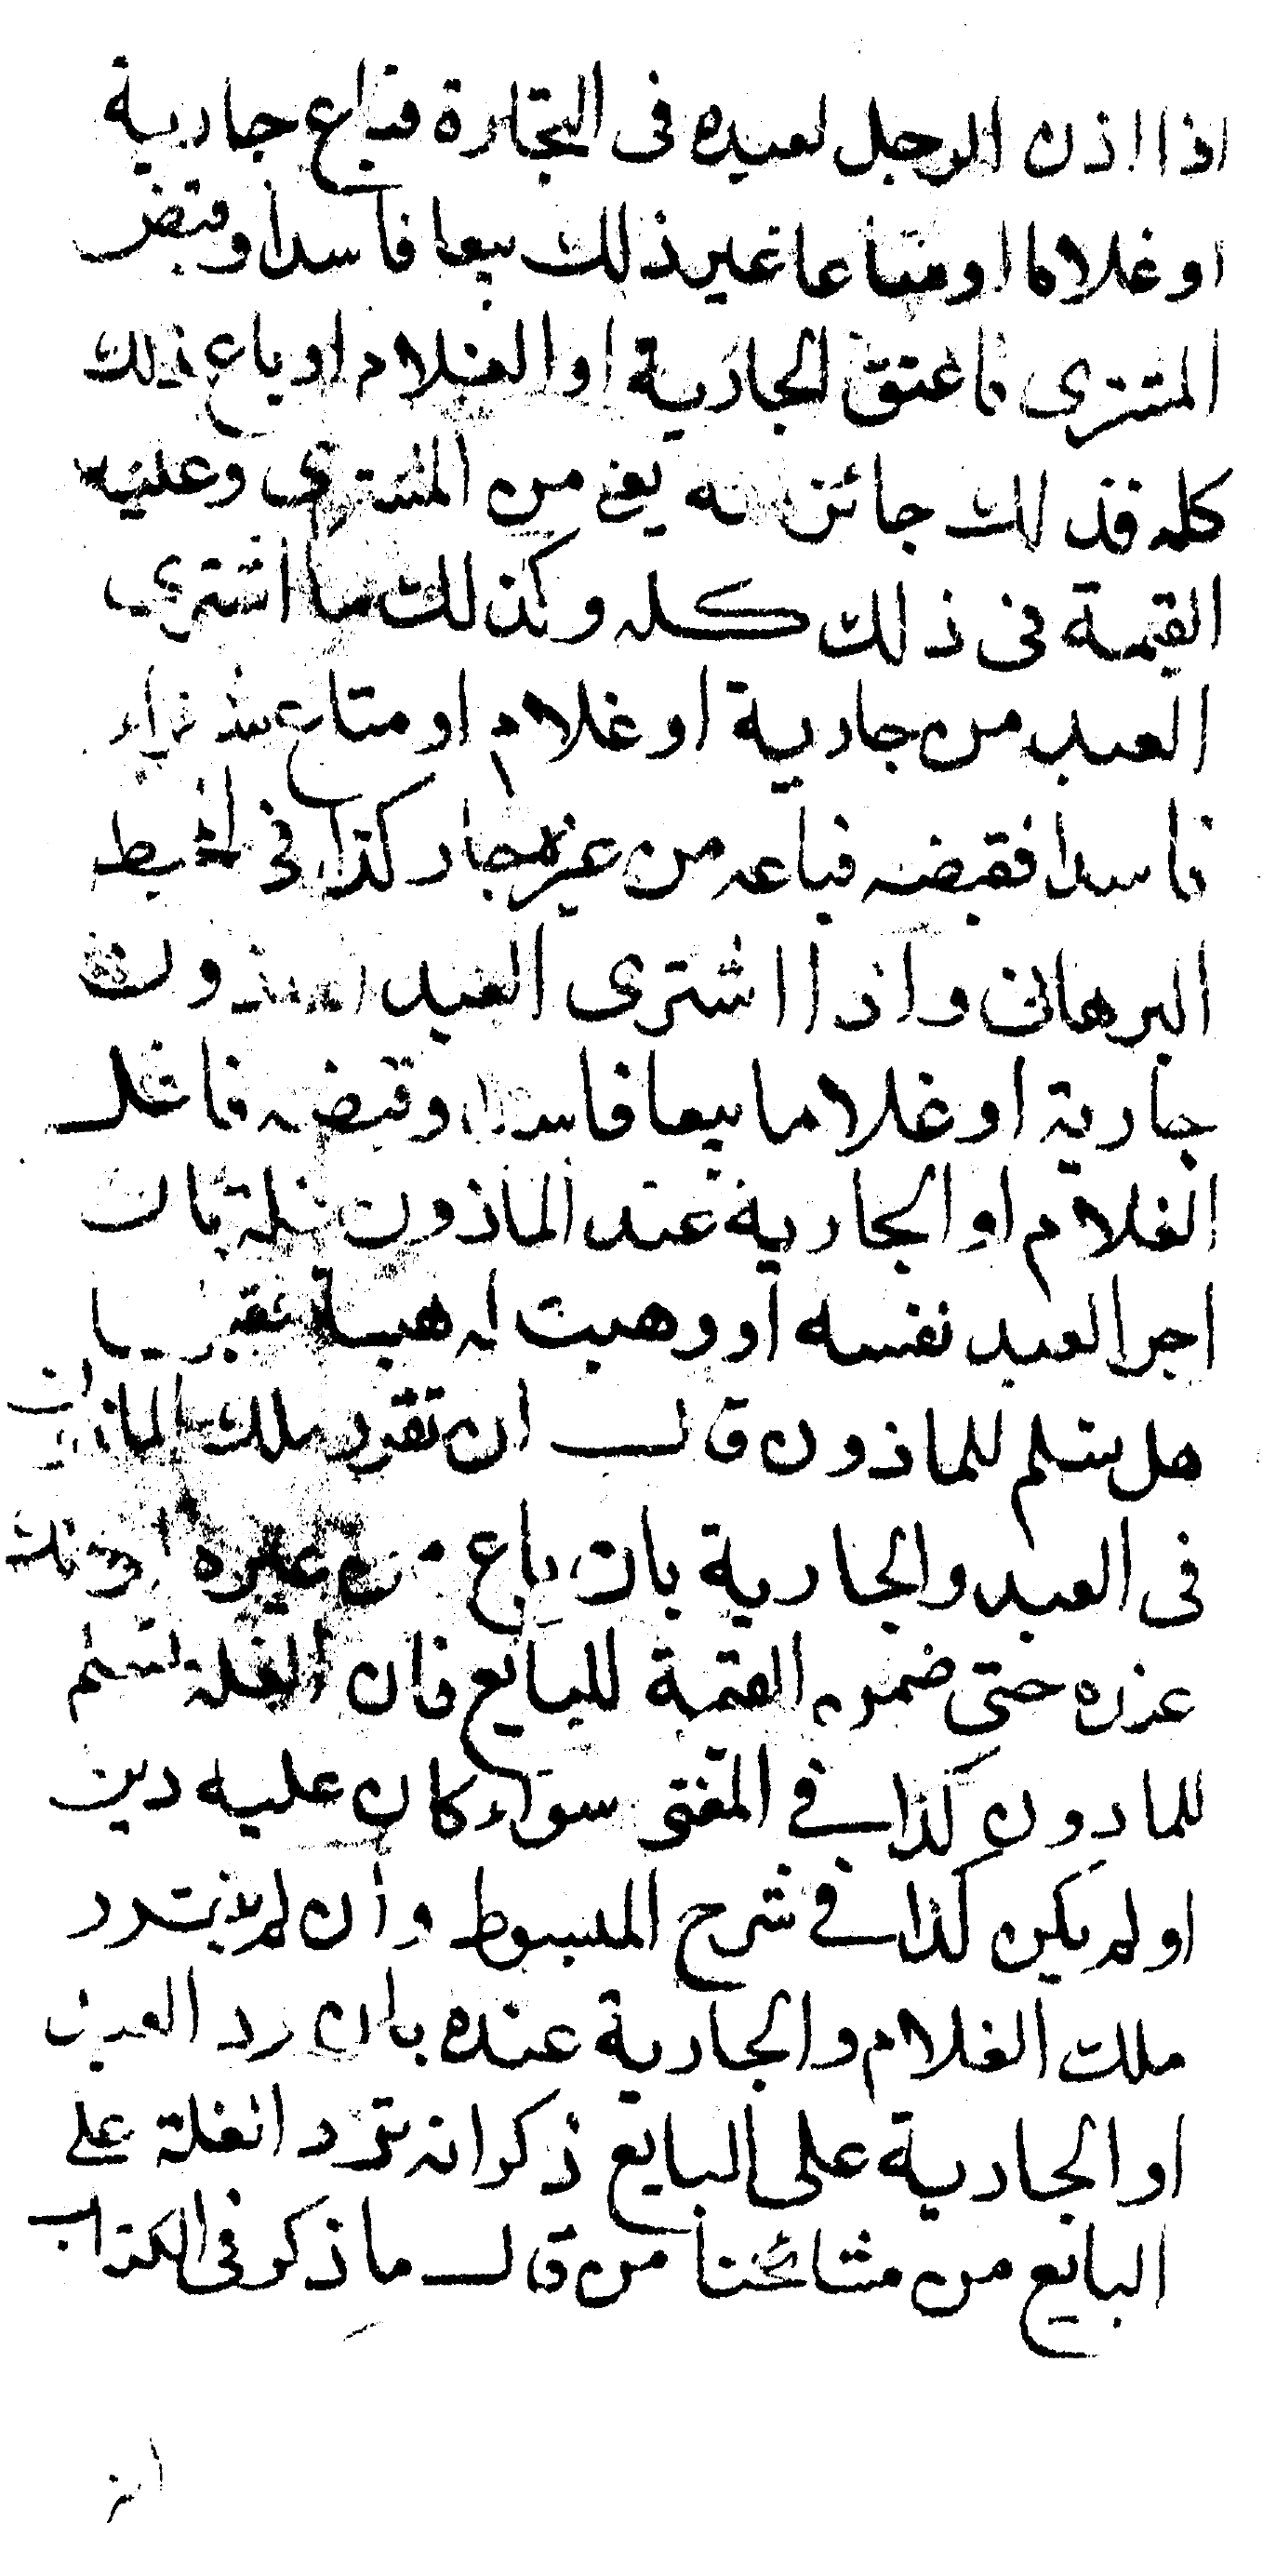 اذا اذن الرجل لعبده فى التجارة فباع جارية
او غلاما او متاعا غير ذلك بيعا فاسدا وقبض
المشترى فاعتق الجارية او الغلام او باع ذلك
كله فذلك جائز يعنى من المشترى وعليه
القيمة فى ذلك كله وكذلك ما اشترى
العبد من جارية او غلام او متاع شراء
فاسدا فقبضه فباعه من غيره جاز كذا فى المحيط
البرهانى واذا اشترى العبد الماذون
جارية او غلاما بيعا فاسدا وقبضه فاغل
الغلام او الجارية عند الماذون غلة بان
اجر العبد نفسه او وهبت له هبة فقبـ
هل يسلم للماذون قال ان تقرر ملك الماذون
فى العبد والجارية بان باع من غيره او هلك
عنده حتى ضمن القيمة للبايع فان الغلة تسلم
للمادون كذا فى المغنى سواء كان عليه دين
او لم يكن كذا فى شرح المبسوط وان لم يتقرر
ملك الغلام والجارية عنده بان رد العبد
او الجارية على البايع ذكر انه ترد الغلة على
البايع من مشائخنا من قال ما ذكر فى الكتاب